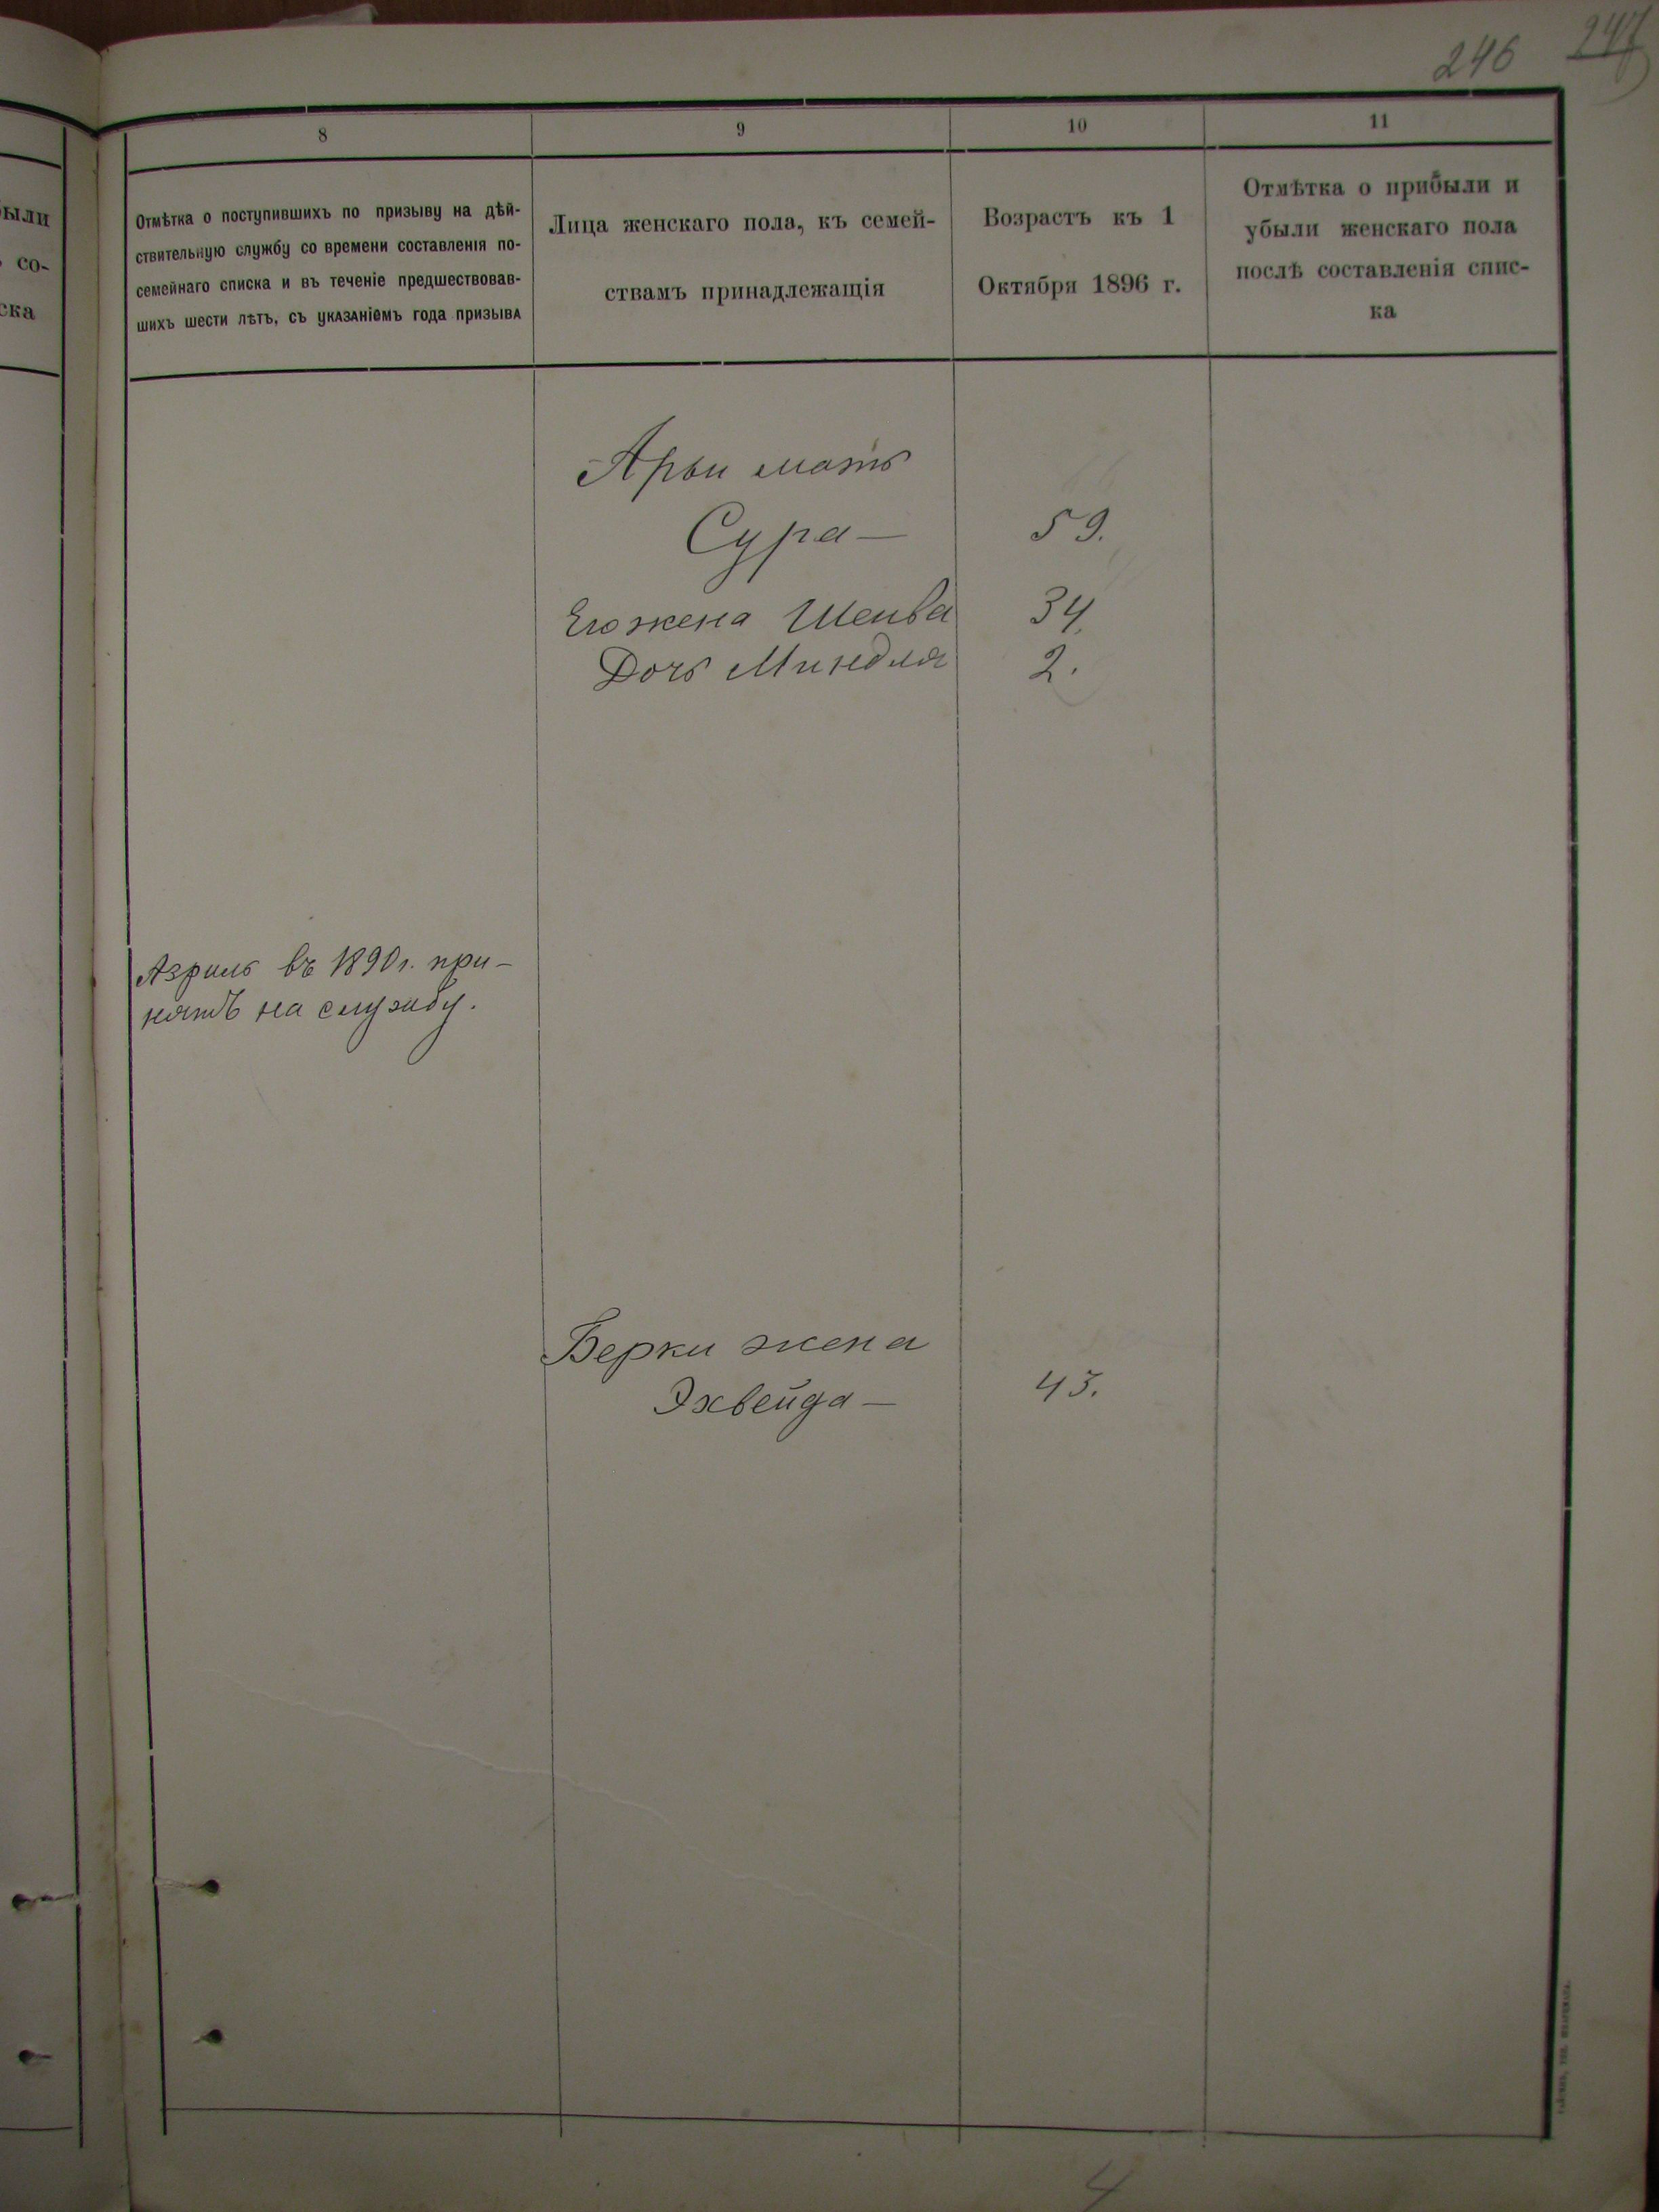 246 247
8 9 10 11
ыли
со-
ска
Отмѣтка о поступившихъ по призыву на дѣй-
ствительную службу со времени составленія по-
семейнаго списка и въ теченіе предшествовав-
шихъ шести лѣтъ, съ указаніемъ года призыва
Лица женскаго пола, къ семей-
ствамъ принадлежащія
Возрастъ къ 1
Октября 1896 г.
Отмѣтка о прибыли и
убыли женскаго пола
послѣ составленія спис-
ка
Арьи мать
Сура — 59.
Его жена Шейва 34.
Дочь Миндля 2.
Азриль въ 1890 г. при-
нятъ на службу.
Берки жена
Эхвейда — 43.
4